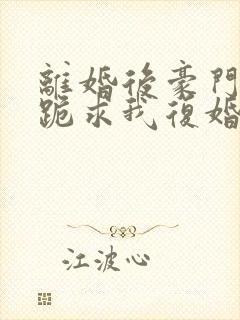 離婚後豪門
跪求我復婚
江波心